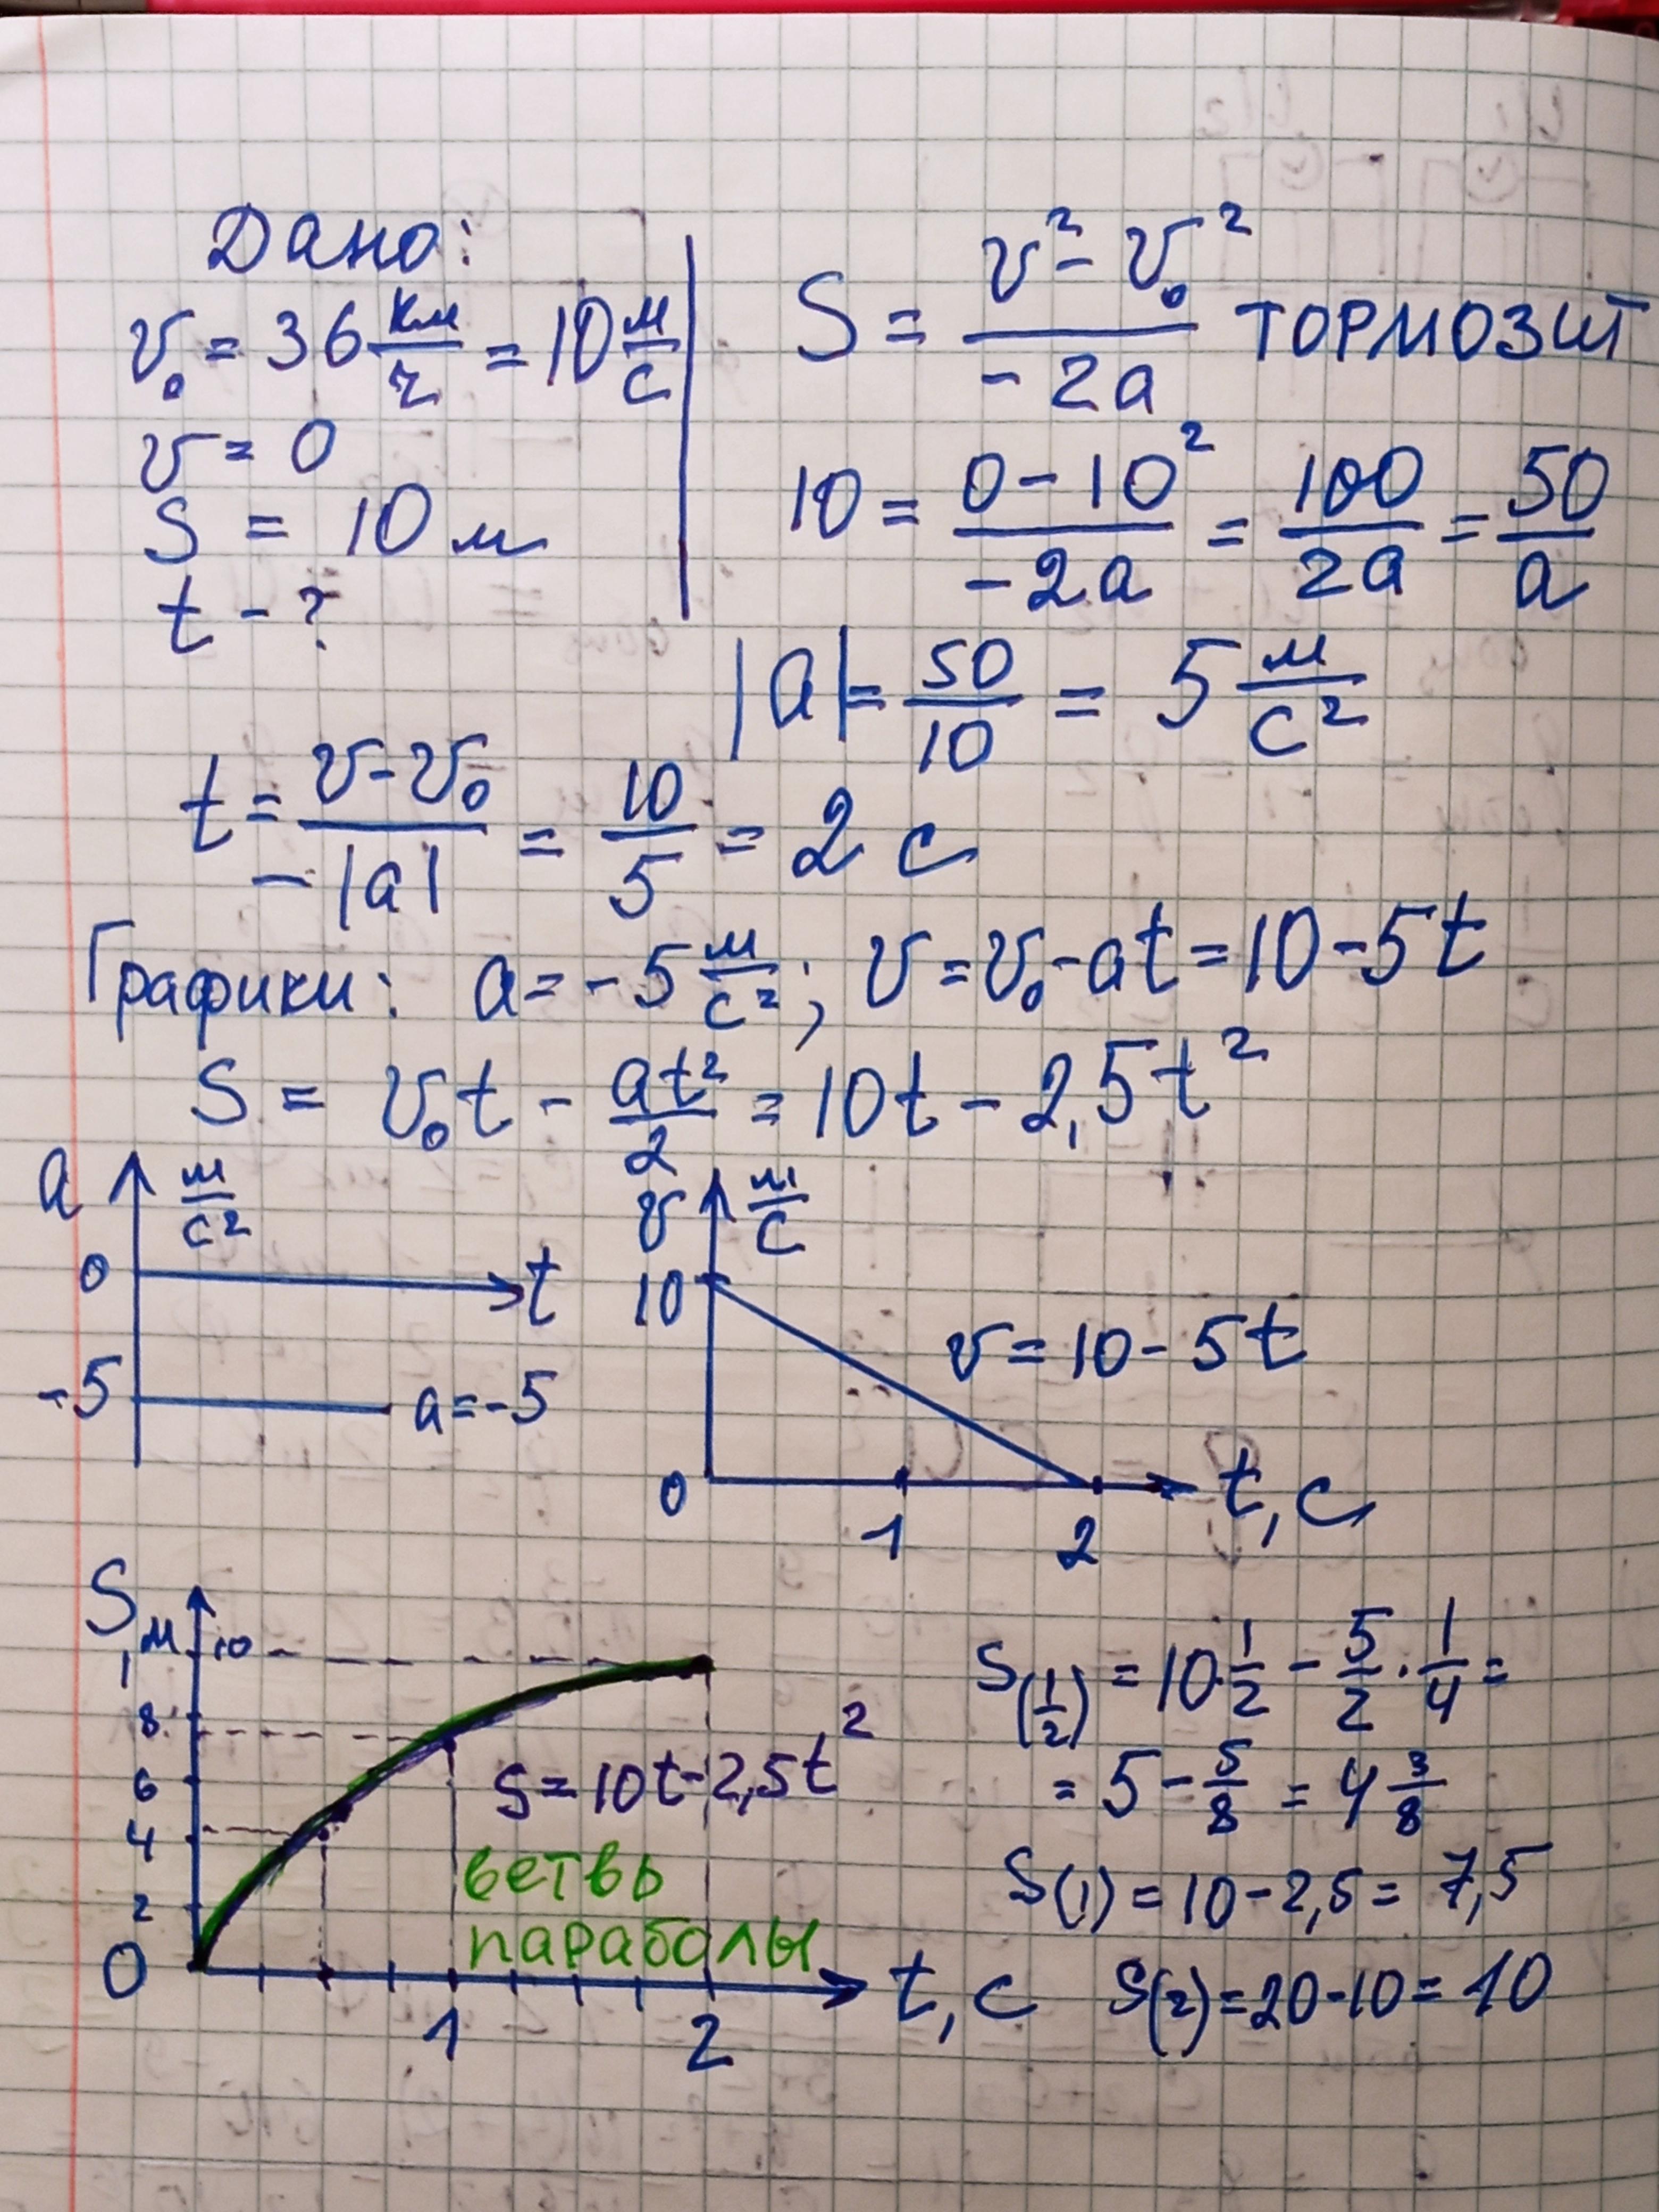 Дано:
v₀ = 36 км/ч = 10 м/с
v = 0
S = 10 м
t - ?
S = (v² - v₀²)/(-2a) тормозит
10 = (0 - 10²)/(-2a) = 100/2a = 50/a
|a| = 50/10 = 5 м/с²
t = (v - v₀)/(-|a|) = 10/5 = 2 с
Графики: a = -5 м/с²; v = v₀ - at = 10 - 5t
S = v₀t - at²/2 = 10t - 2,5t²
a м/с²
0
t
-5
a = -5
v м/с
10
v = 10 - 5t
0
1
2
t, с
S, м
10
8
6
4
2
0
S = 10t - 2,5t²
ветвь
параболы
1
2
t, с
S(1/2) = 10·1/2 - 5/2 · 1/4 =
= 5 - 5/8 = 4 3/8
S(1) = 10 - 2,5 = 7,5
S(2) = 20 - 10 = 10